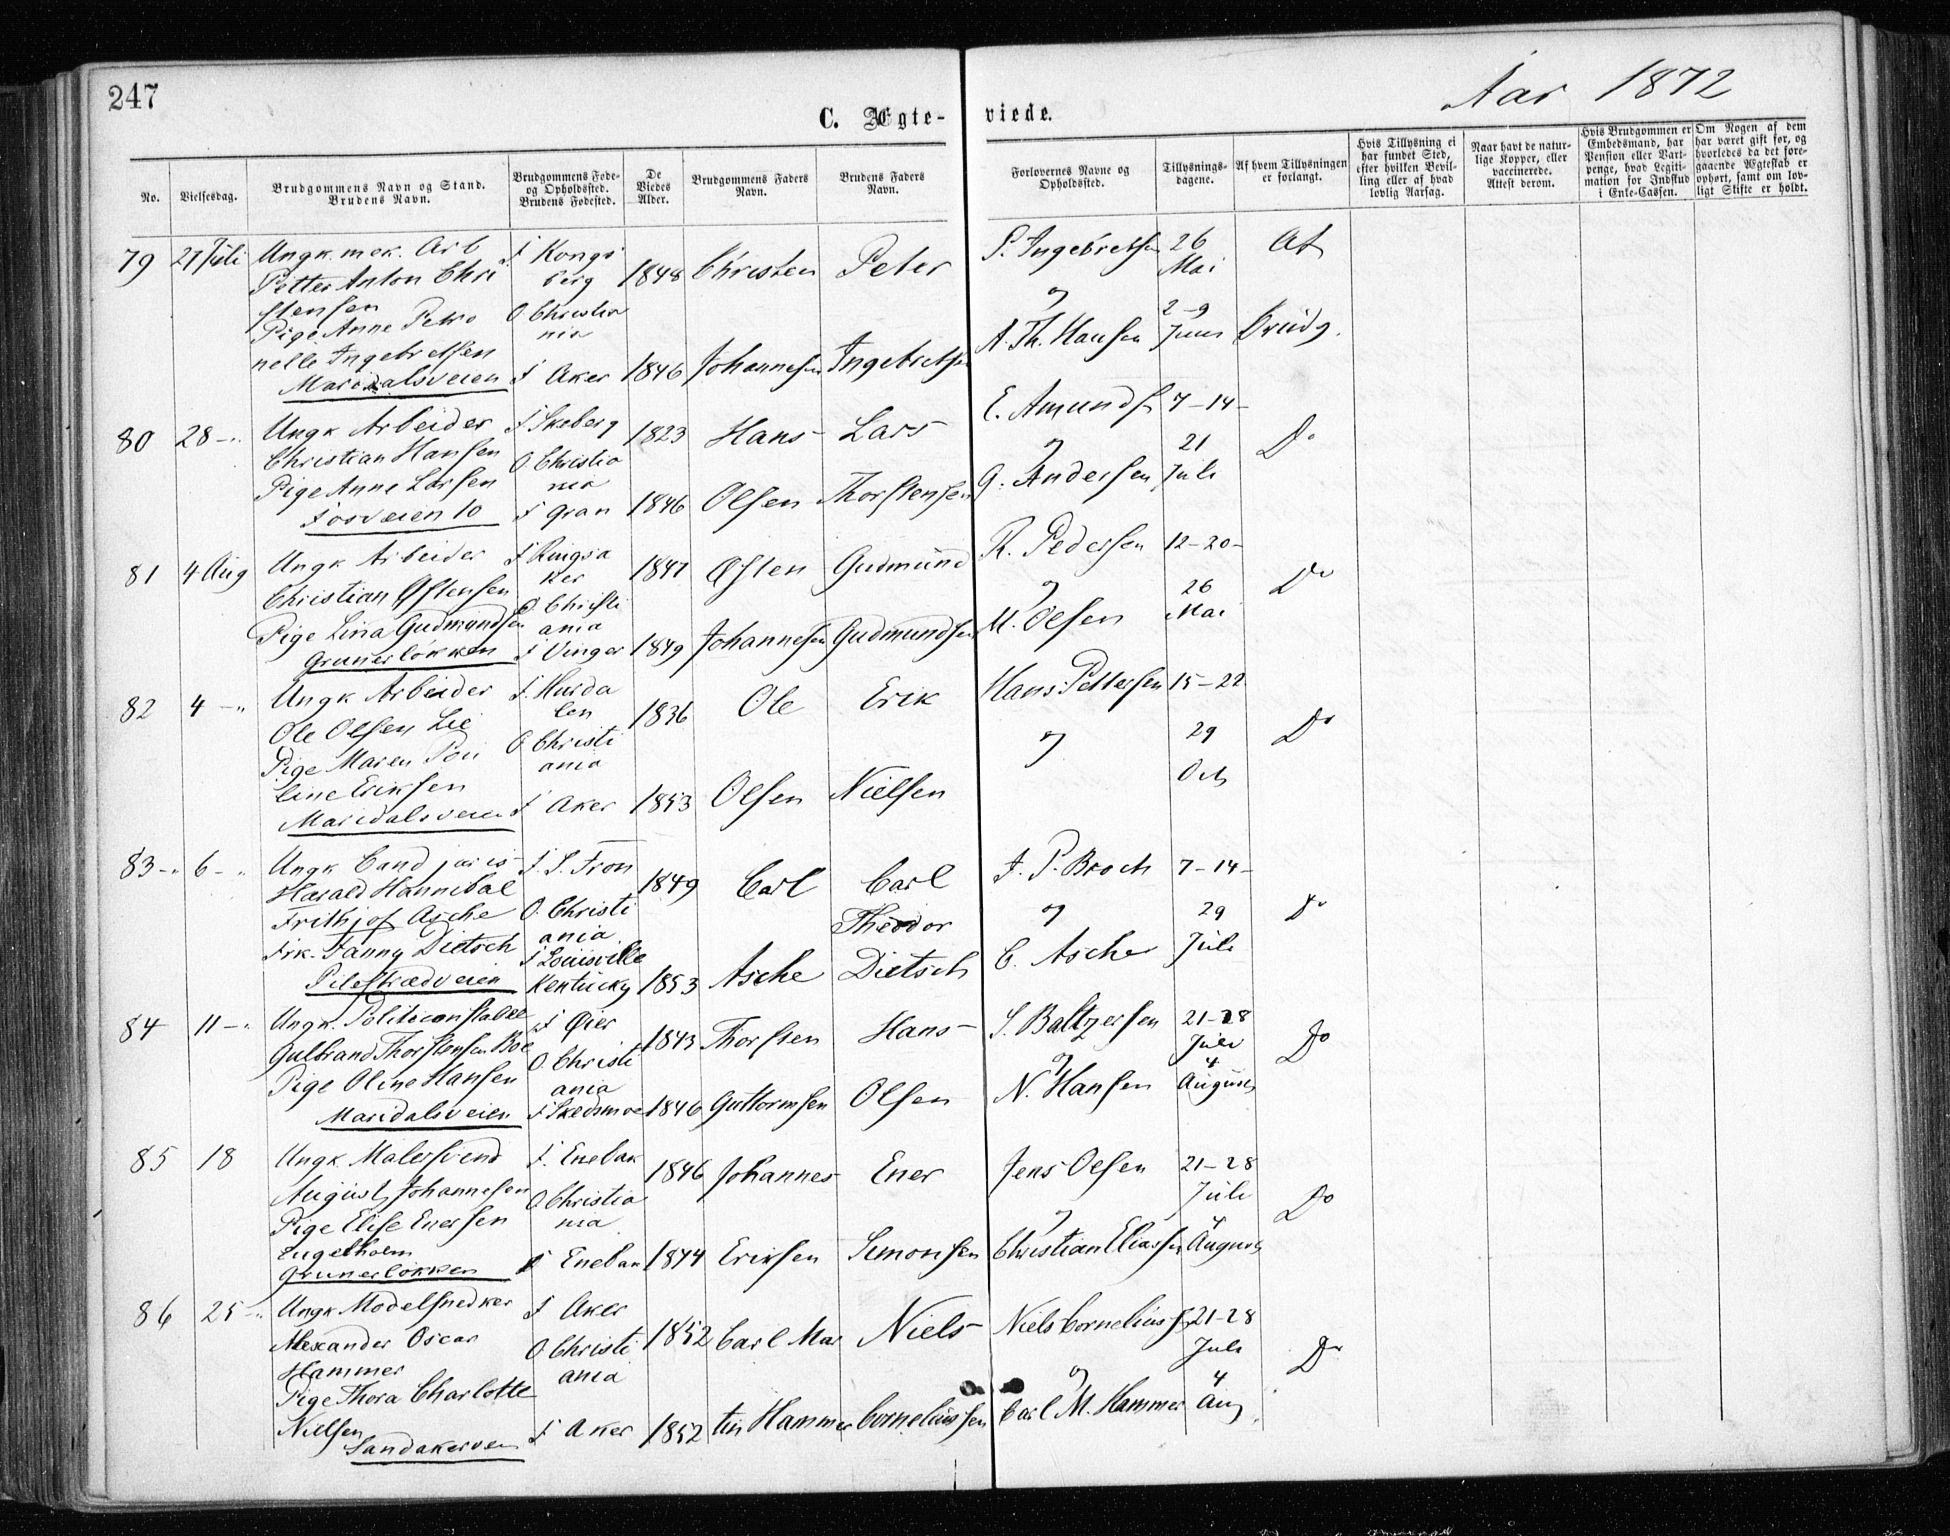 247
Aar 1872
C. Ægte-
viede.
No.
Vielsesdag.
Brudgommens Navn og Stand.
Brudens Navn.
Brudgommens Føde-
og Opholdssted.
Brudens Fødested.
De
Viedes
Alder.
Brudgommens Faders
Navn.
Brudens Faders
Navn.
Forlovernes Navne og
Opholdssted.
Tillysnings-
dagene.
Af hvem Tillysningen
er forlangt.
Hvis Tillysning ei
har fundet Sted,
efter hvilken Bevil-
ling eller af hvad
lovlig Aarsag.
Naar havt de natur-
lige Kopper, eller
vaccinerede.
Attest derom.
Hvis Brudgommen er
Embedsmand, har
Pension eller Vart-
penge, hvad Legiti-
mation for Indskud
i Enke-Cassen.
Om Nogen af dem
har været gift før, og
hvorledes da det fore-
gaaende Ægteskab er
ophørt, samt om lov-
ligt Skifte er holdt.
79 27 Juli Ungk. mek. Arb F Kongs 1848 Christen Peter P. Ingebretsen 26 Af
Petter Anton Chri berg Mai
stensen O Christia og 2-9
Pige Anne Petro nia A. Th. Hansen Juni Brudg.
nelle Ingebretsen F Aker 1846 Johannesen Ingebretsen
Maridalsveien
80 28 -"- Ungk Arbeider F Skeberg 1823 Hans Lars E. Amunds 7-14-
Christian Hansen O Christia og 21 Do
Pige Anne Larsen nia G. Andersen Juli
Fosveien 10 F Gran 1846 Olsen Thorstensen
81 4 Aug Ungk Arbeider F Ringsa 1847 Østen Gudmund R. Pedersen 12-20-
Christian Østensen ker og 26 Do
Pige Lina Gudmundsen O Christi M. Olsen Mai
ania
Grunerløkken F Vinger 1849 Johannesen Gudmundsen
82 4 -"- Ungk Arbeider F. Hurda 1836 Ole Erik Hans Pettersen 15-22
Ole Olsen Lie len og 29 Do
Pige Maren Pou O Christi Oct
line Eriksen ania
Maridalsveien F Aker 1853 Olsen Nielsen
83 -"- 6 -"- Ungk Cand juris F. S. Fron 1849 Carl Carl F. P. Broch 7-14-
Harald Hannibal Theodor og 29 Do
Frithjof Asche O. Christi C. Asche Juli
Frk. Fanny Dietsch ania
F Louisville
Pilestrædveien Kentucky 1853 Asche Dietsch
84 11 -"- Ungk. Politiconstabel F Øier 1843 Thorsten Hans S. Baltzersen 21-28
Gulbrand Thorstensen Boe O. Christi og Juli Do
Pige Oline Hansen ania N. Hansen 4 August
Maridalsveien F Skedsmoe 1846 Guttormsen Olsen
85 18 Ungk. Malersvend F. Enebak 1846 Johannes Ener Jens Olsen 21-28
August Johannesen O Christia og Juli Do
Pige Elise Enersen nia 4
Engelholm
Grunerløkken F Enebak 1844 Eriksen Simonsen Christian Eliassen August
86 25 -"- Ungk Modelsnedker F Aker 1852 Carl Mar Niels Niels Cornelius 21-28
Alexander Oscar O Christi Juli Do
Hammer ania og 4
Pige Thora Charlotte Carl M. Hammer Aug
Nielsen F Aker 1852 tin Hammer Corneliussen
Sandakerveien